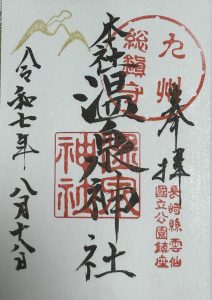 奉拝
長崎縣雲仙
国立公園鎮座
九州
総鎮守
本社
温泉神社
温泉
神社
令和七年八月十八日